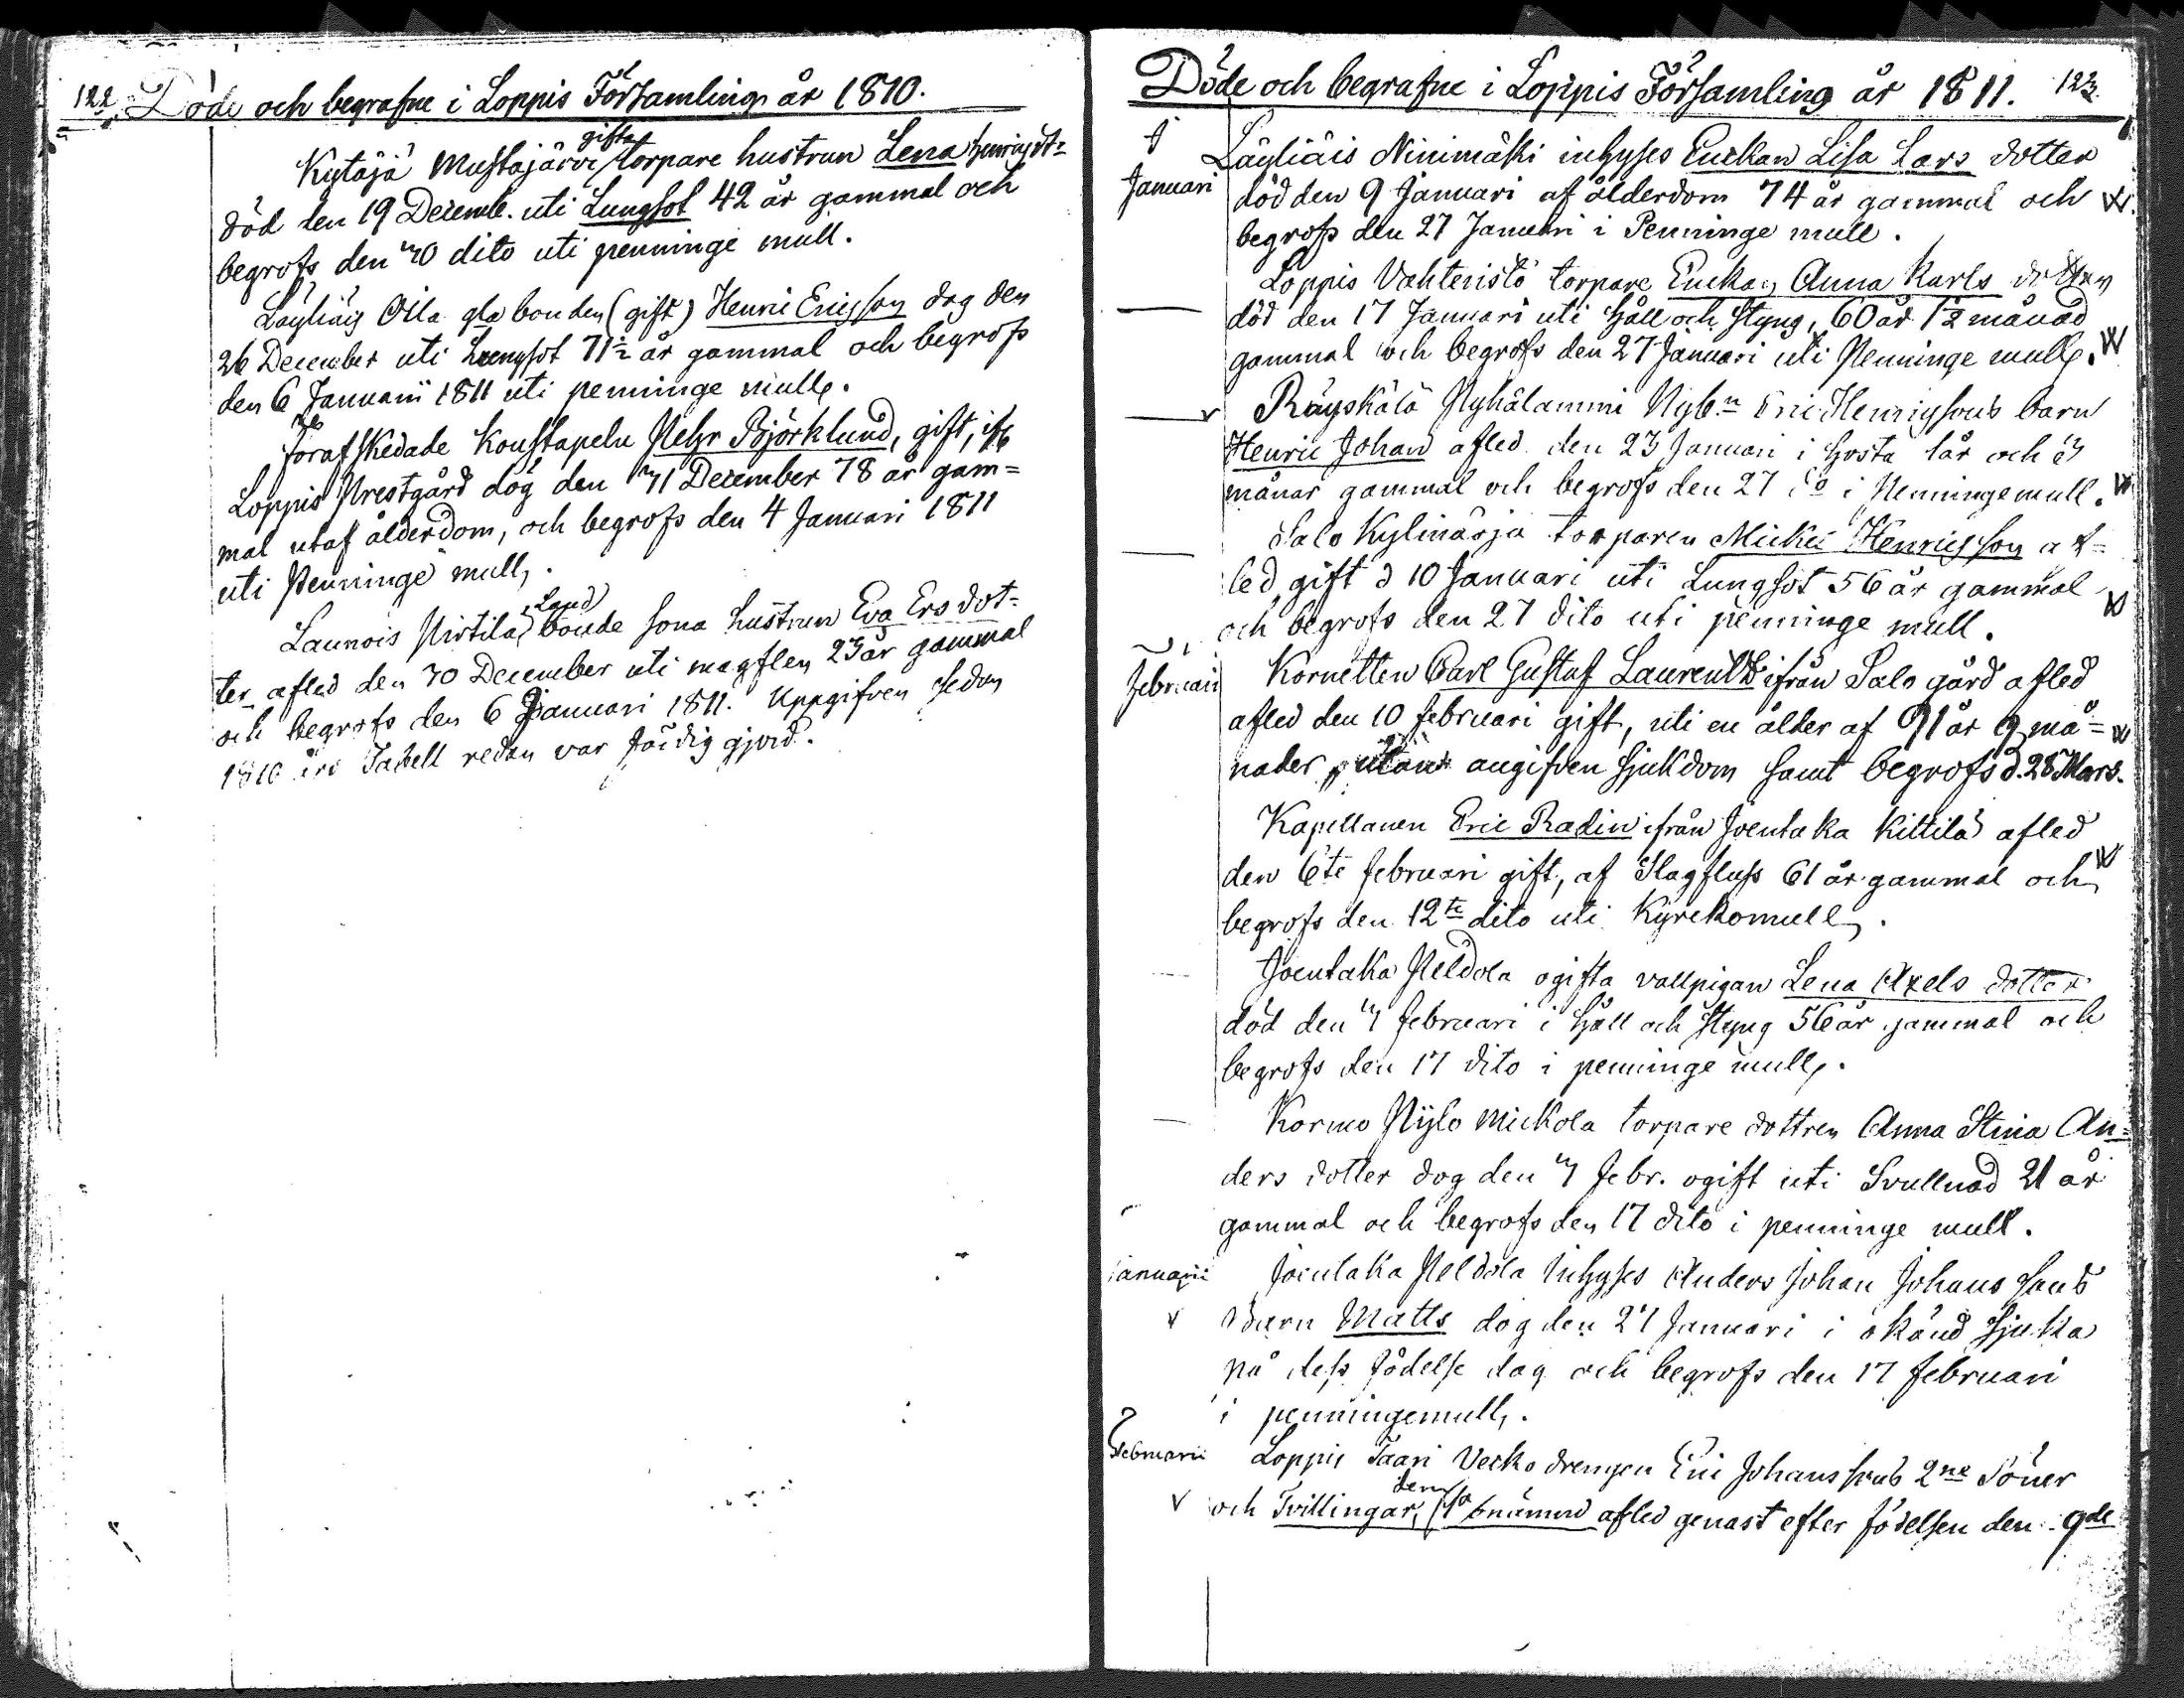 122. Döde och begrafne i Loppis Församling år 1810.
Kytäjä Mustajärvi gifta torpare hustrun Lena Henrigsdt=
död den 19 Decemb. uti Lungsot 42 år gammal och
begrofs den 30 dito uti penninge mull.
Läyliäis Oila gla bonden (gift) Henric Ericsson dog den
26 December uti Lungsot 71½ år gammal och begrofs
den 6 Januarii 1811 uti penninge mull.
Förafskedade Konstapeln Pehr Björklund, gift, ifr
Loppis Prestgård dog den 31 December 78 år gam=
mal utaf ålderdom, och begrofs den 4 Januari 1811
uti Penninge mull.
Launois Pirtilä Land bonde sona hustrun Eva Ersdot=
ter afled den 30 December uti magflen 23 år gammal
och begrofs den 6 Januari 1811. Uppgifven sedan
1810 års Tabell redan var färdig gjord.
Döde och begrafne i Loppis Församling år 1811. 123.
Januari
Läyliäis Ninimäki inhyses Enckan Lisa Lars dotter
död den 9 Januari af ålderdom 74 år gammal och
begrofs den 27 Januari i Penninge mull.
Loppis Vahteristö torpare Enckan Anna Karls dotter
död den 17 Januari uti Håll och Styng, 60 år 1½ månad
gammal och begrofs den 27 Januari uti Penninge mull.
Räyskälä Pyhälammi Nyb.n Eric Henrigsons barn
Henric Johan afled den 23 Januari i Hosta 1 år och 3
månar gammal och begrofs den 27 do i Penningemull.
Salo Kylinärja torparen Mickel Henrigsson af=
led, gift d 10 Januari uti Lungsot 56 år gammal
och begrofs den 27 dito uti penninge mull.
Februari
Kornetten Carl Gustaf Laurentz ifrån Salo gård afled
afled den 10 februari gift, uti en ålder af 91 år 9 må=
nader, utan angifven Sjukdom samt begrofs d. 28 Mars.
Kapellanen Eric Radin ifrån Joentaka Kittilä afled
den 6te februari gift, af Slagfluss 61 år gammal och
begrofs den 12te dito uti Kyrekomull.
Joentaka Peldola ogifta vallpigan Lena Axels dotter
död den 7 februari i Håll och Styng 56 år gammal och
begrofs den 17 dito i penninge mull.
Kormo Piylo Mickola torpare dottren Anna Stina An=
ders dotter dog den 7 febr. ogift uti Svullnad 21 år
gammal och begrofs den 17 dito i penninge mull.
Januarii
Joentaka Peldola Inhyses Anders Johan Johans sons
Barn Matts dog den 27 Januari i okänd Sjuka
på dess födelse dag och begrofs den 17 februari
i penningemull.
Februarii
Loppis Taari Vecko drengen Eric Johanssons 2ne Söner
och Tvillingar, den 1a onämnd afled genast efter födelsen den 9de